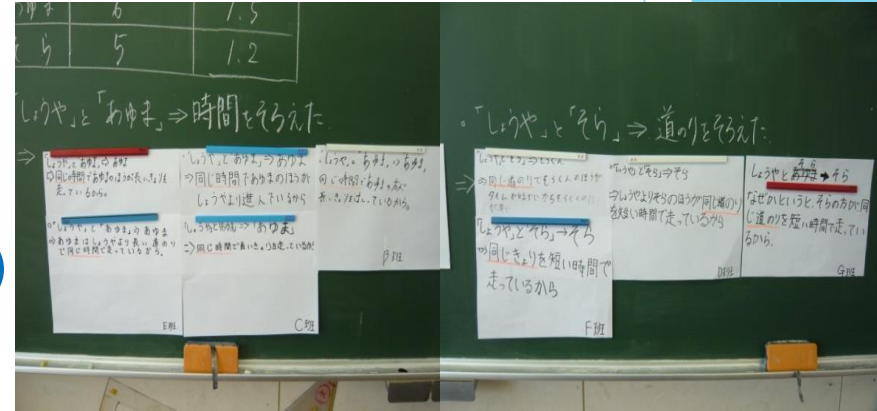 6 1.5
そら 5 1.2
「しょうや」と「あゆま」⇒時間をそろえた
⇒
「しょうや」と「あゆま」⇒あゆま
⇒同じ時間であゆまのほうが長いきょりを
走っているから。
「しょうや」と「あゆま」⇒あゆま
⇒あゆまはしょうやより長い道のり
で同じ時間で走っているから。
E班
「しょうや」と「あゆま」⇒あゆま
⇒同じ時間であゆまのほうが
しょうやより進んでいるから
⇒「あゆま」
⇒同じ時間で長いきょりを走っているから
C班
同じ時間であゆまの方が
長いきょりを走っているから。
B班
・「しょうや」と「そら」⇒道のりをそろえた
⇒
⇒同じ道のりでそらくんのほうが
「しょうや」と「そら」→そら
⇒同じきょりを短い時間で
走っているから
F班
「しょうや」と「そら」⇒そら
⇒しょうやよりそらのほうが同じ道のり
を短い時間で走っているから
D班
しょうやとそら→そら
なぜかというと、そらの方が同
じ道のりを短い時間で走ってい
るから。
G班